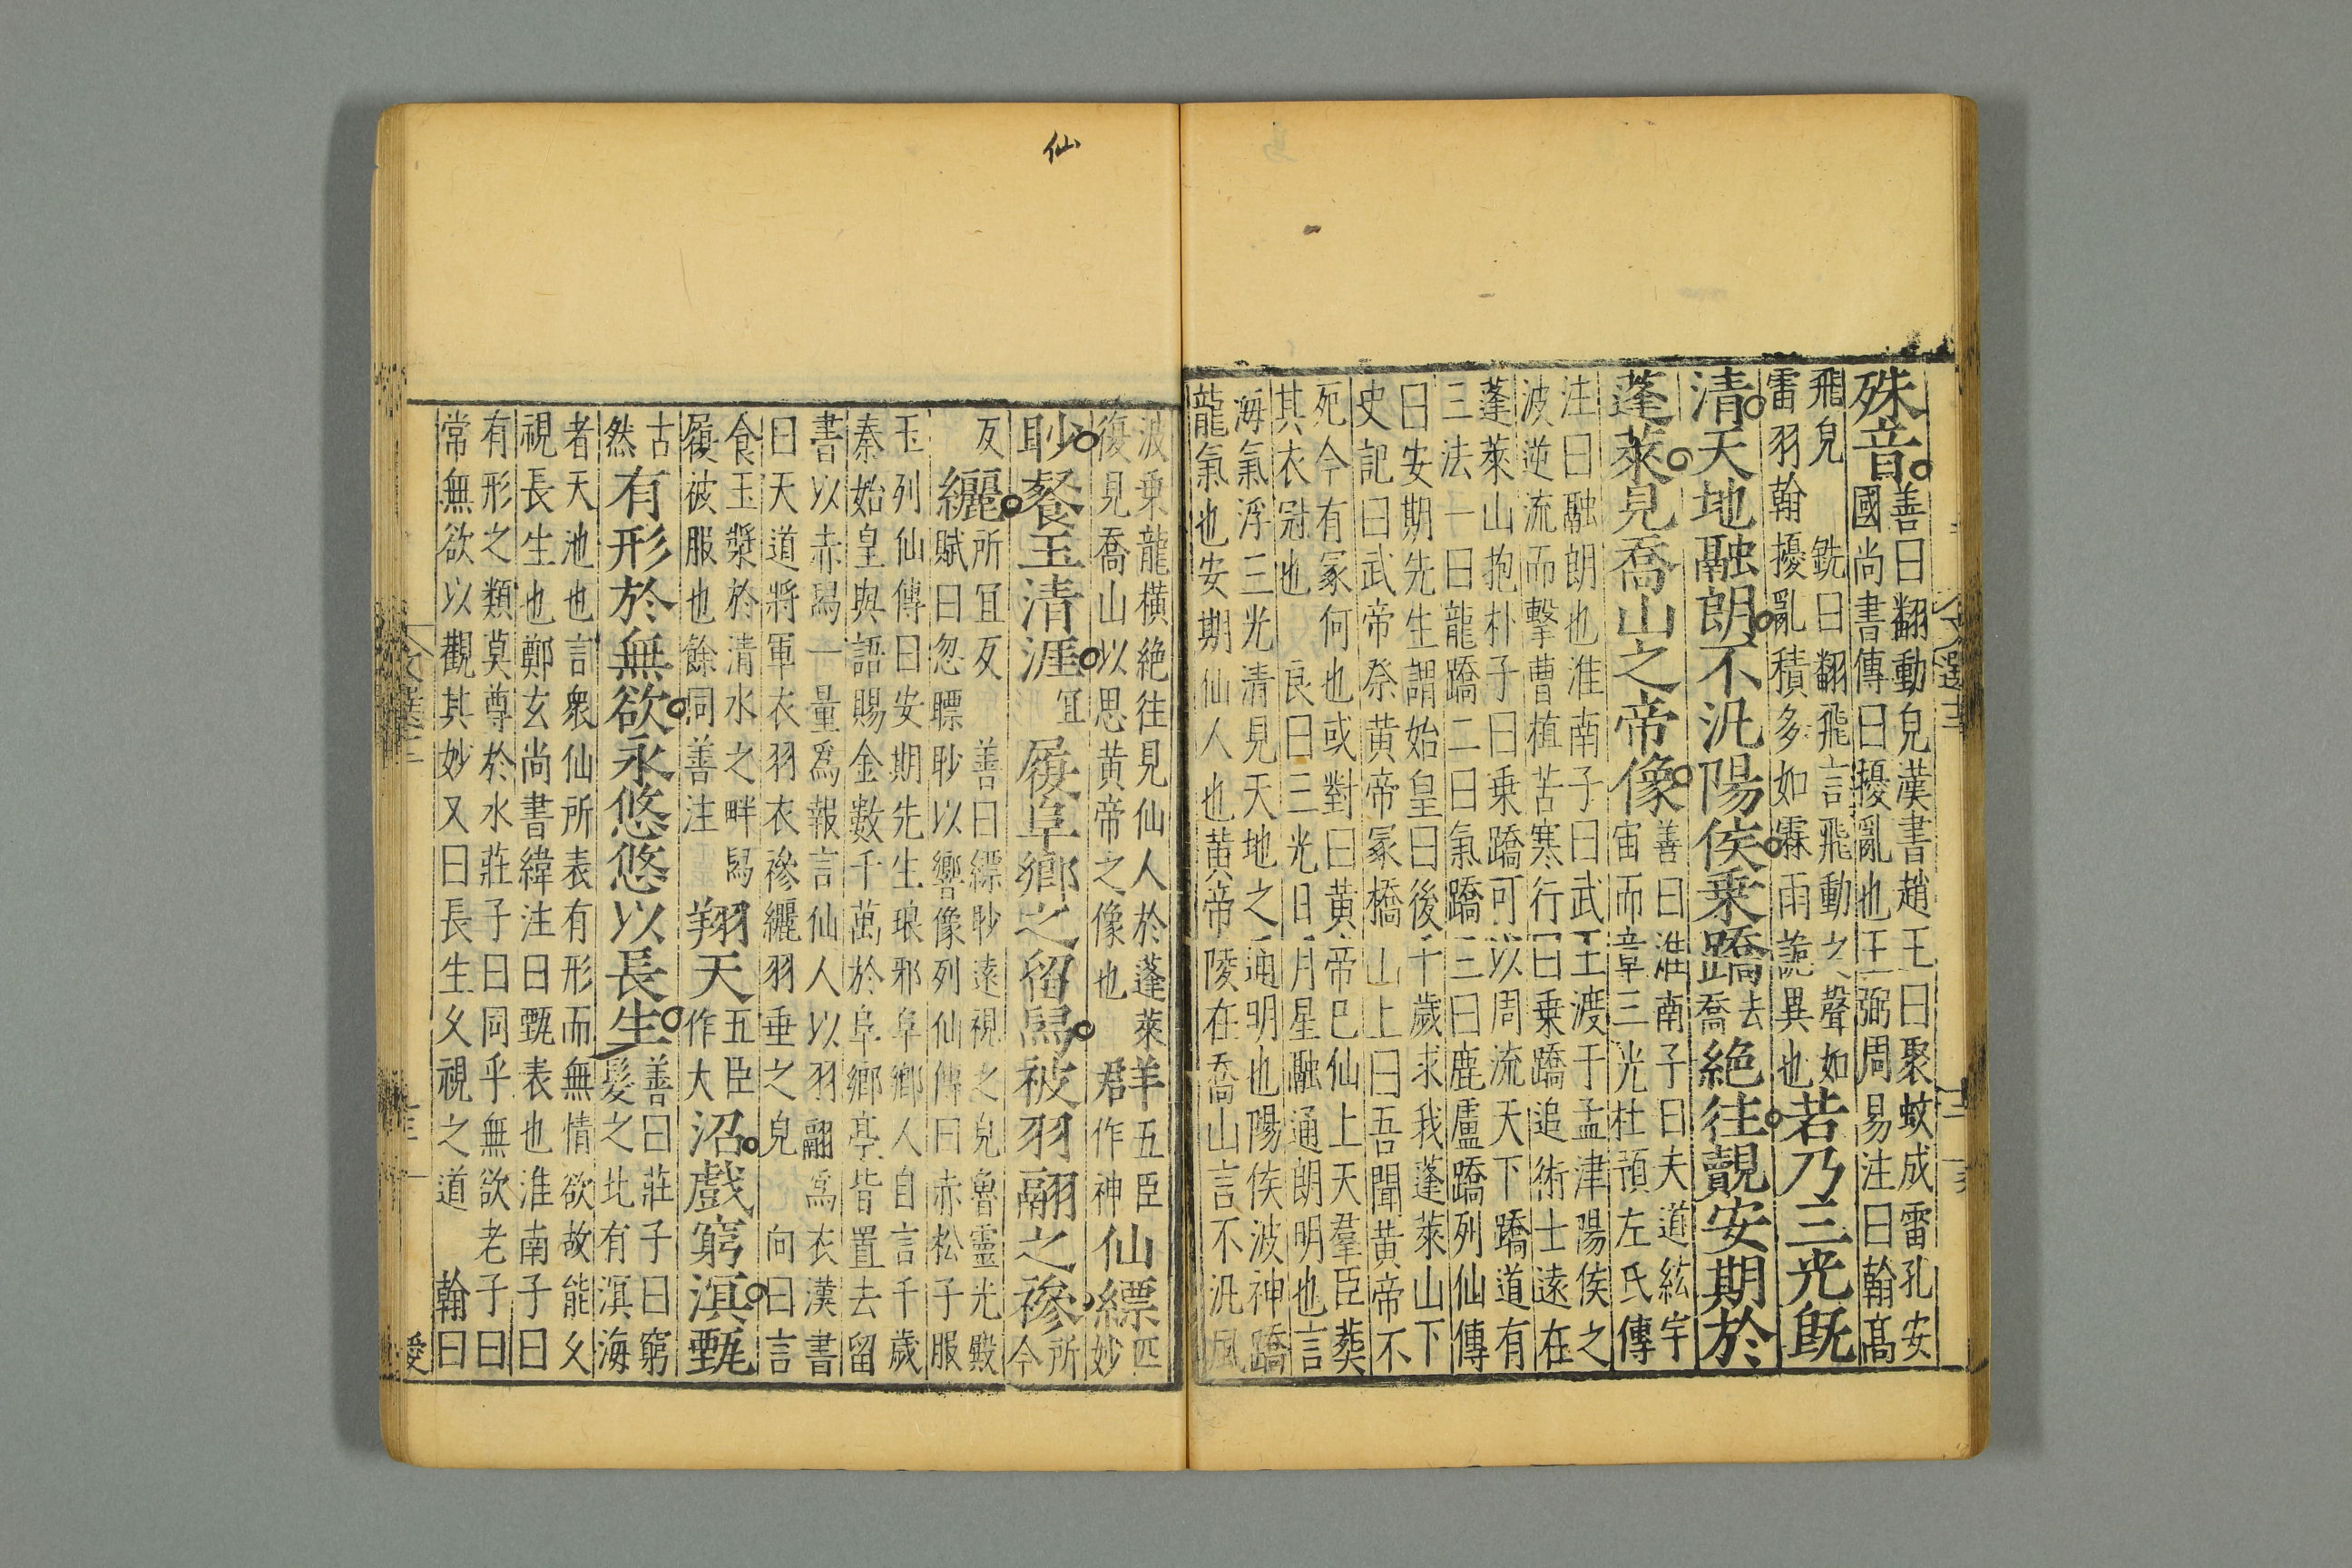 殊音善曰翻動皃漢書趙王曰聚蚊成雷孔安
國尚書傳曰擾亂也王弼周易注曰翰高
飛皃 銑曰翻飛言飛動之聲如
雷羽翰擾亂積多如霖雨詭異也若乃三光旣
清天地融朗不汎陽侯乗蹻去喬絶往覿安期於
蓬萊見喬山之帝像善曰淮南子曰夫道紘宇
宙而章三光杜預左氏傳
注曰融朗也淮南子曰武王渡于孟津陽侯之
波逆流而擊曹植苦寒行曰乗蹻追術士遠在
蓬萊山抱朴子曰乗蹻可以周流天下蹻道有
三法一曰龍蹻二曰氣蹻三曰鹿盧蹻列仙傳
曰安期先生謂始皇曰後千歲求我蓬萊山下
史記曰武帝祭黄帝冢橋山上曰吾聞黄帝不
死今有冢何也或對曰黄帝巳仙上天羣臣葬
其衣冠也 良曰三光日月星融通朗明也言
海氣浮三光清見天地之通明也陽侯波神蹻
龍氣也安期仙人也黄帝陵在喬山言不汎風
仙
波乗龍横絶往見仙人於蓬萊
復見喬山以思黄帝之像也羣五臣作神仙縹匹妙
眇餐玉清涯宜履阜鄉之留舄被羽翮之襂所今
反纚所冝反 善曰縹眇遠視之皃魯靈光殿
賦曰忽瞟眇以響像列仙傳曰赤松子服
玉列仙傳曰安期先生琅邪阜鄉人自言千歲
秦始皇與語賜金數千萬於阜鄉亭皆置去留
書以赤舄一量爲報言仙人以羽翮爲衣漢書
曰天道將軍衣羽衣襂纚羽垂之皃 向曰言
食玉漿於清水之畔舄
履被服也餘同善注翔天五臣作大沼戲窮溟甄
古然有形於無欲永悠悠以長生善曰莊子曰窮
髮之北有溟海
者天池也言衆仙所表有形而無情欲故能乆
視長生也鄭玄尚書緯注曰甄表也淮南子曰
有形之類莫尊於水莊子曰同乎無欲老子曰
常無欲以觀其妙又曰長生乆視之道 翰曰